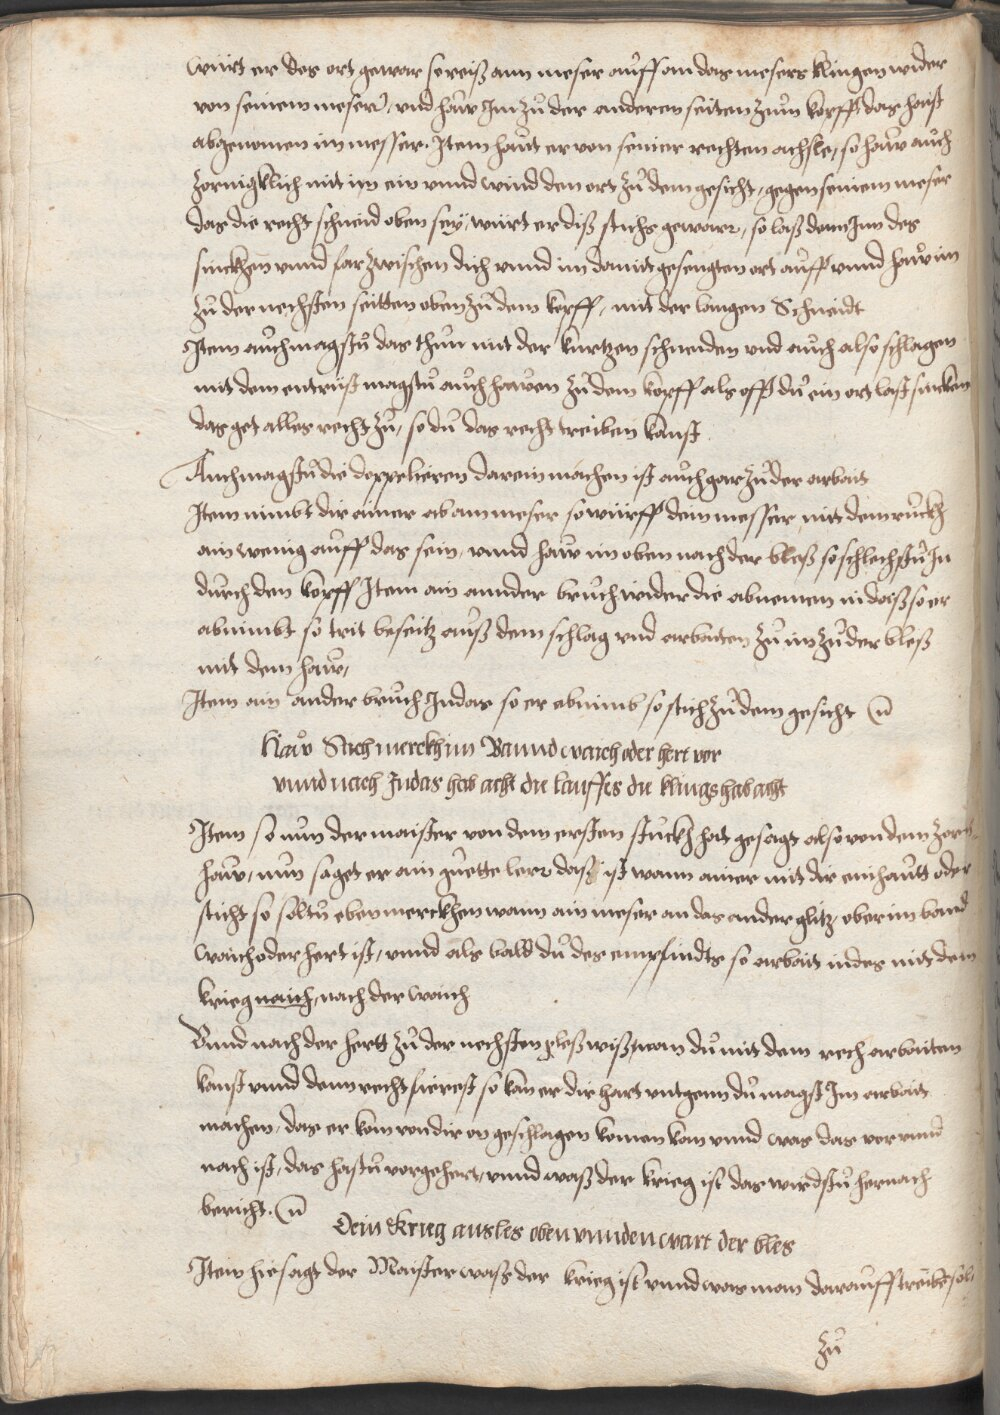 würt er des ort gewar so reiß ann meser auff an das mesers klingen wider
von seinem meser, vnd haw Im zů der anderen seiten zum kopff, das haist
abgenomen im messer. Item haut er von seiner rechten achsle, so haw auch
zornigklich mit im ein vnnd wind den ort zů dem gesicht, gegen seinem meser
das die recht schneid oben sey, würt er diß stichs gewarr, so laß denn Inn des
sinckhen vnnd far zwischen dich vnnd im damit gesengten ort auff vnnd haw im
zů der nechsten seitten oben zů dem kopff, mit der langen Schneidt
Item auch magstu das thůn mit der kurtzen schneiden vnd auch also schlagen
mit dem entrüst magstu auch hawen zů dem kopff als offt du ein ort last sincken
das get alles recht zů, so du das recht treiben kanst
Auch magstu die doppelieren darein machen ist auch gar zů der arbait
Item nimbt dir ainer ab am meser so würff dein messer mit dem ruckh
ain wenig auff das sein, vnnd haw im oben nach der bleß so schlechstu In
durch den kopff Item ain annder bruch wider die abnemen in daiß so er
abnimbt so trit beseitz auß dem schlag vnd arbaiten zů im zů der bleß
mit dem haw,
Item ain ander bruch Indas so er abnimb so stich zů dem gesicht
Haw Stich merckh im Bannd waich oder hert vor
vnnd nach Indas hab acht die lauffes die kriegs hab acht
Item so nun der maister von dem ersten stuckh hat gesagt also von dem zorn
haw, nun saget er ain guette lerr daß ist wann ainer mit dir einhautt oder
sticht so soltu eben merckhen wann ain meser an das ander glitz, ober im band
waich oder hert ist, vnnd als bald du des empfindts so arbait indes mit dem
krieg naich, nach der waich
Vnnd nach der hertt zů der nechsten bleß wiß, wan du mit dem rech arbaiten
kanst vnnd denn recht fierest so kan er dir hart entgenn du magst Im arbait
machen, das er kom von dir on geschlagen komen kan vnnd was das vor vnnd
nach ist, das hastu vor gehert, vnnd waß der krieg ist das wirdstu hernach
bericht.
Dein Krieg ausles oben vnnden wart der bles
Item hie sagt der Maister waß der krieg ist vnnd was man darauff treiben sol,
zů